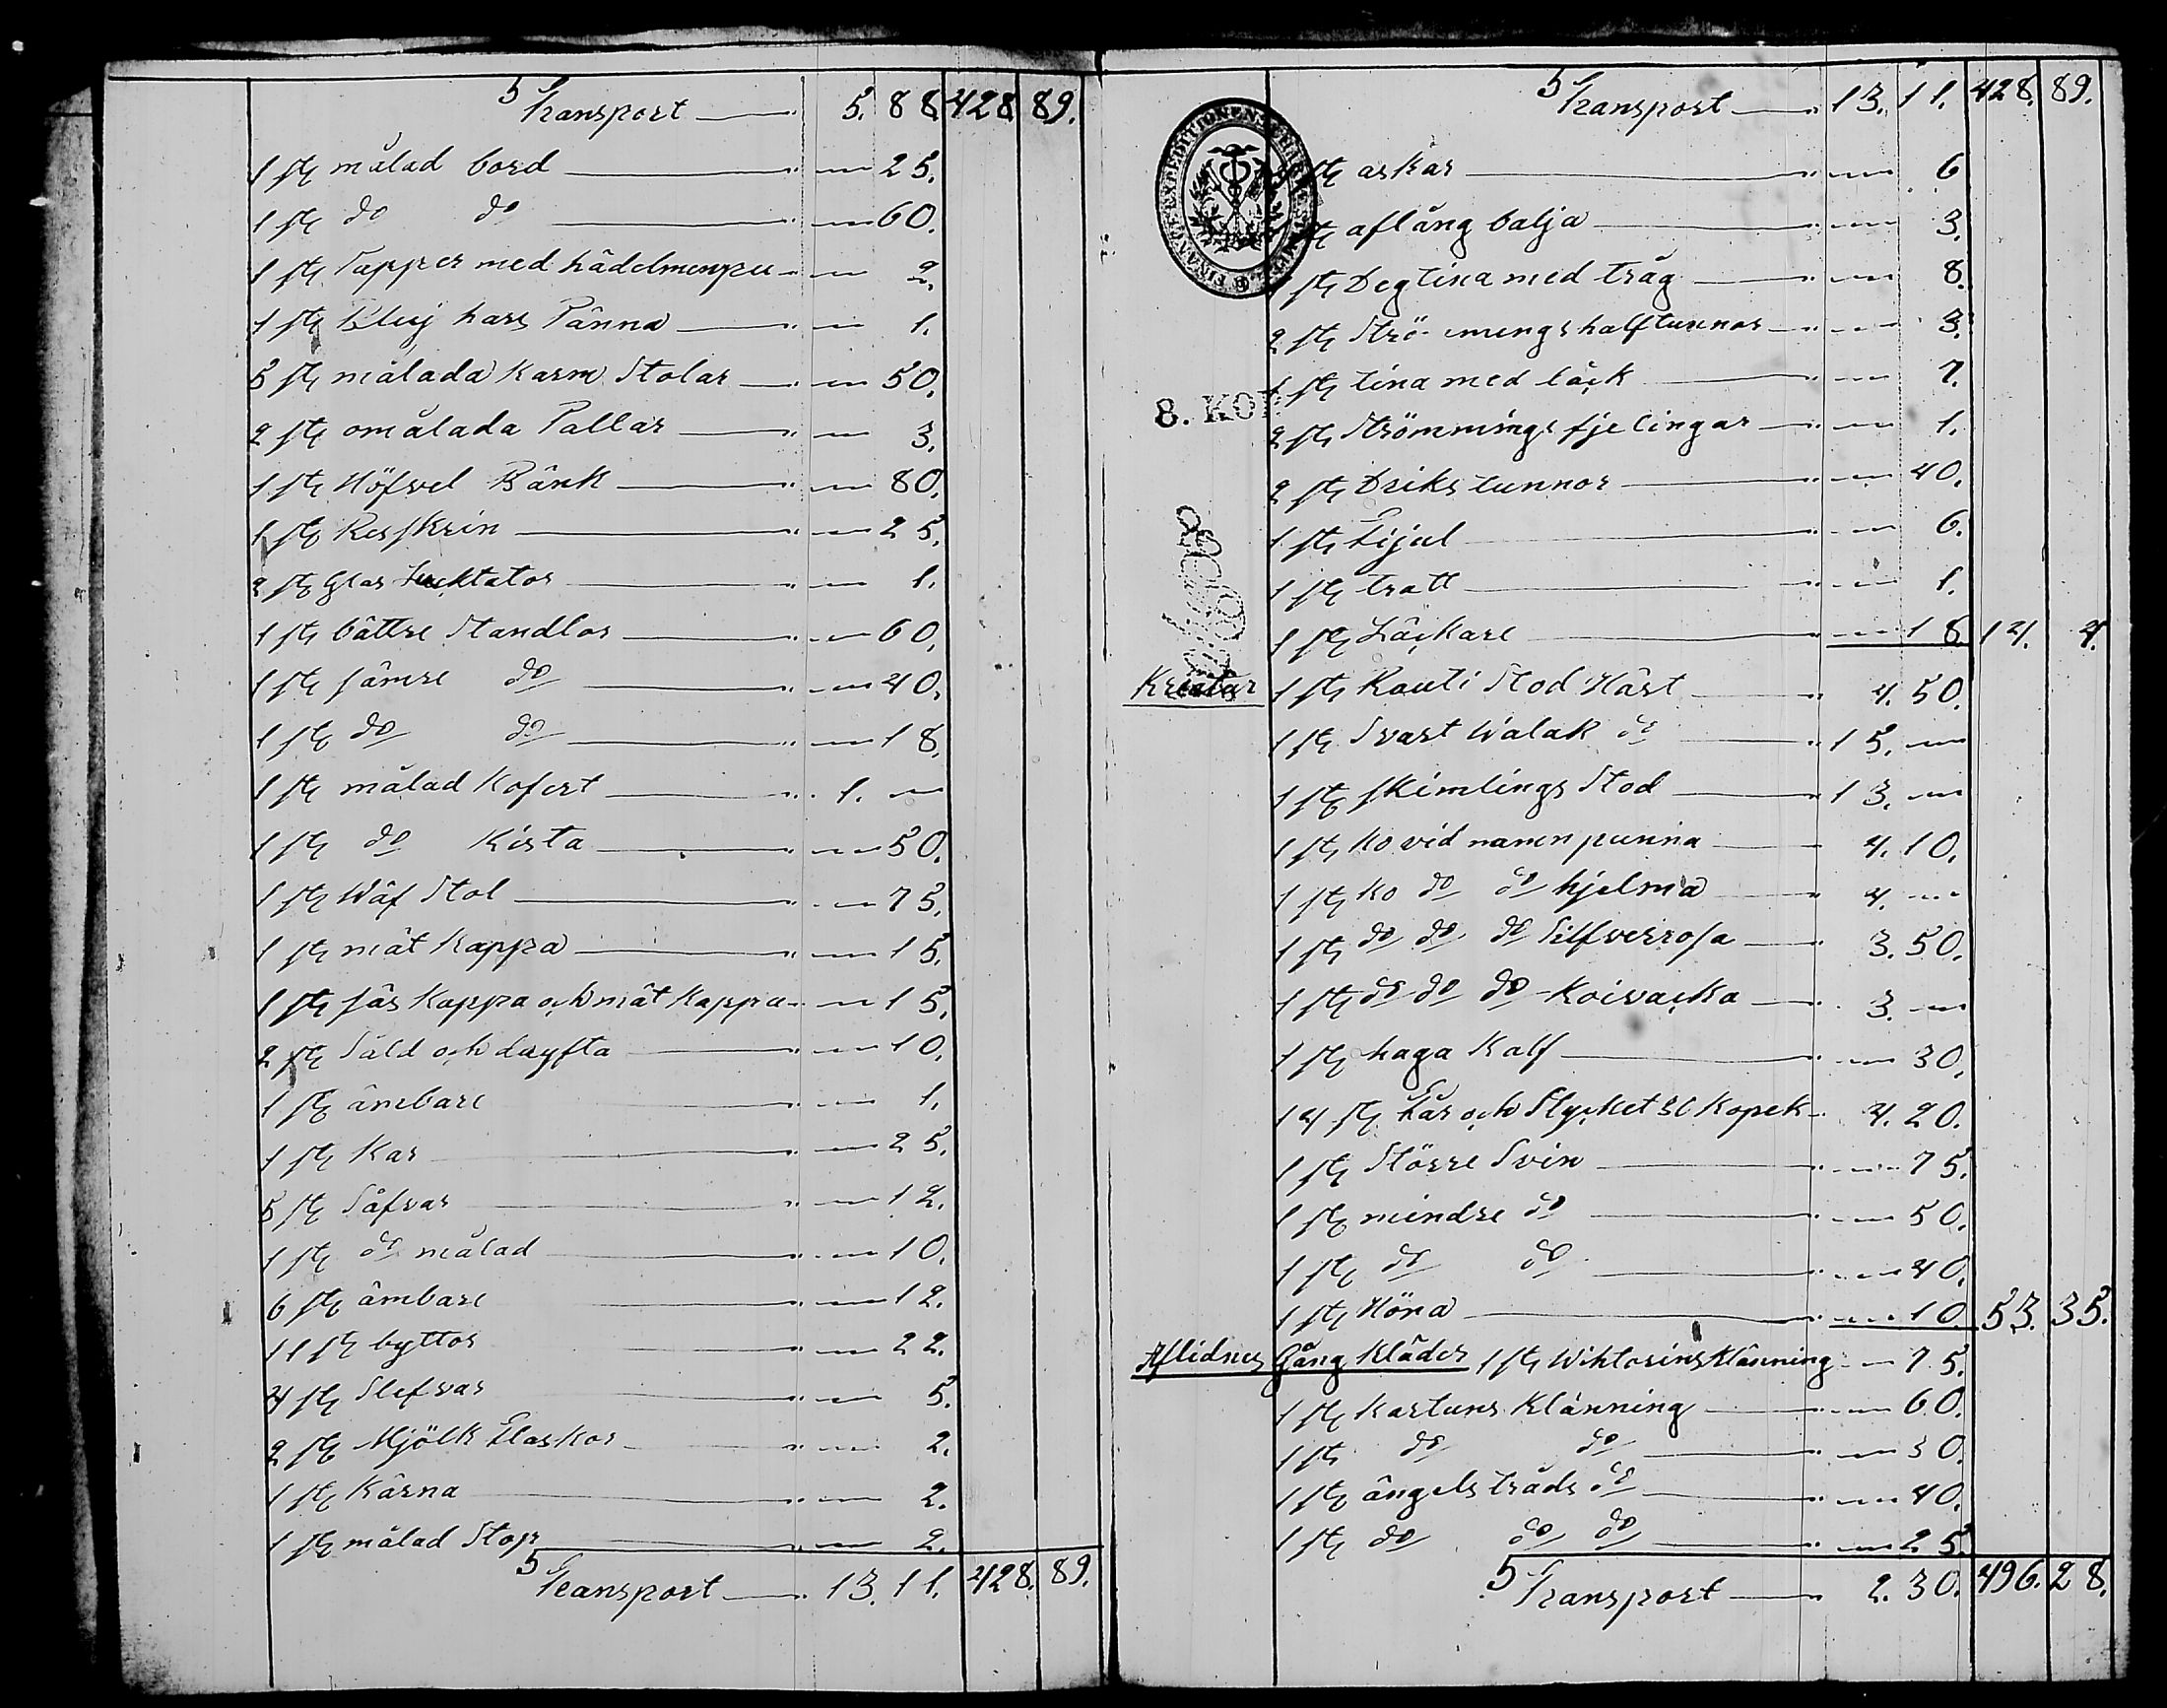 Transport 5. 88. 428 89.
1 st målad bord 25.
1 st do do 60.
1 st Papper med 2.
1 st hars Pânna 1.
5 st målada Karm Stolar 50.
2 st omålada Pallar 3.
1 st Höfvel Bänk 80.
1 st Resskrin 25.
2 st Glas 1.
1 st bättre Standlar 60.
1 st sämre do 40.
1 st do do 18.
1 st målad Kofert 1.
1 st do Kista 50.
1 st Wäf Stol 75.
1 st mât Kappa 15.
1 st sâs Kappa och mât Kappa 15.
2 st Såld och dryfta 10.
1 st âmbare 1.
1 st Kar 25.
5 st Såfvar 12.
1 st do målad 10.
6 st âmbare 12.
11 st byttor 22.
4 st Slefvar 5.
2 st Mjölk Flaskor 2.
1 st Kärna 2.
1 st målad Stop 2.
Transport 13. 11. 428. 89.
Transport 13. 11. 428. 89.
st askar 6
st aflång balja 3.
1 st Degtina med tråg 8.
2 st Strömings halftunnor 3.
8. KOP
1 st tina med låck 7.
2 st Strömmings fjelingar 1.
2 st Driks tunnor 40.
1 st 6.
1 st tratt 1.
1 st Läckare 18. 14. 4.
Kreatur 1 st Rauti Stod Häst 4. 50.
1 st Svart Walak do 15.
1 st skimlings Stod 13.
1 st Ko vid namn punna 4. 10.
1 st Ko do do hjelma 4.
1 st do do do Silfverrosa 3. 50.
1 st do do do Koivacka 3.
1 st haga Kalf 30.
14 st Får och Stycket 30 Kopek 4. 20.
1 st Större Svin 75.
1 st mindre do 50.
1 st do do 40.
1 st Höna 10. 53. 35.
Aflidnes Gång Kläder 1 st Wiktorins Klänning 75.
1 st Kartuns Klänning 60.
1 st do do 30.
1 st ängels tråds do 40.
1 st do do do 25.
Transport 2. 30. 496. 28.